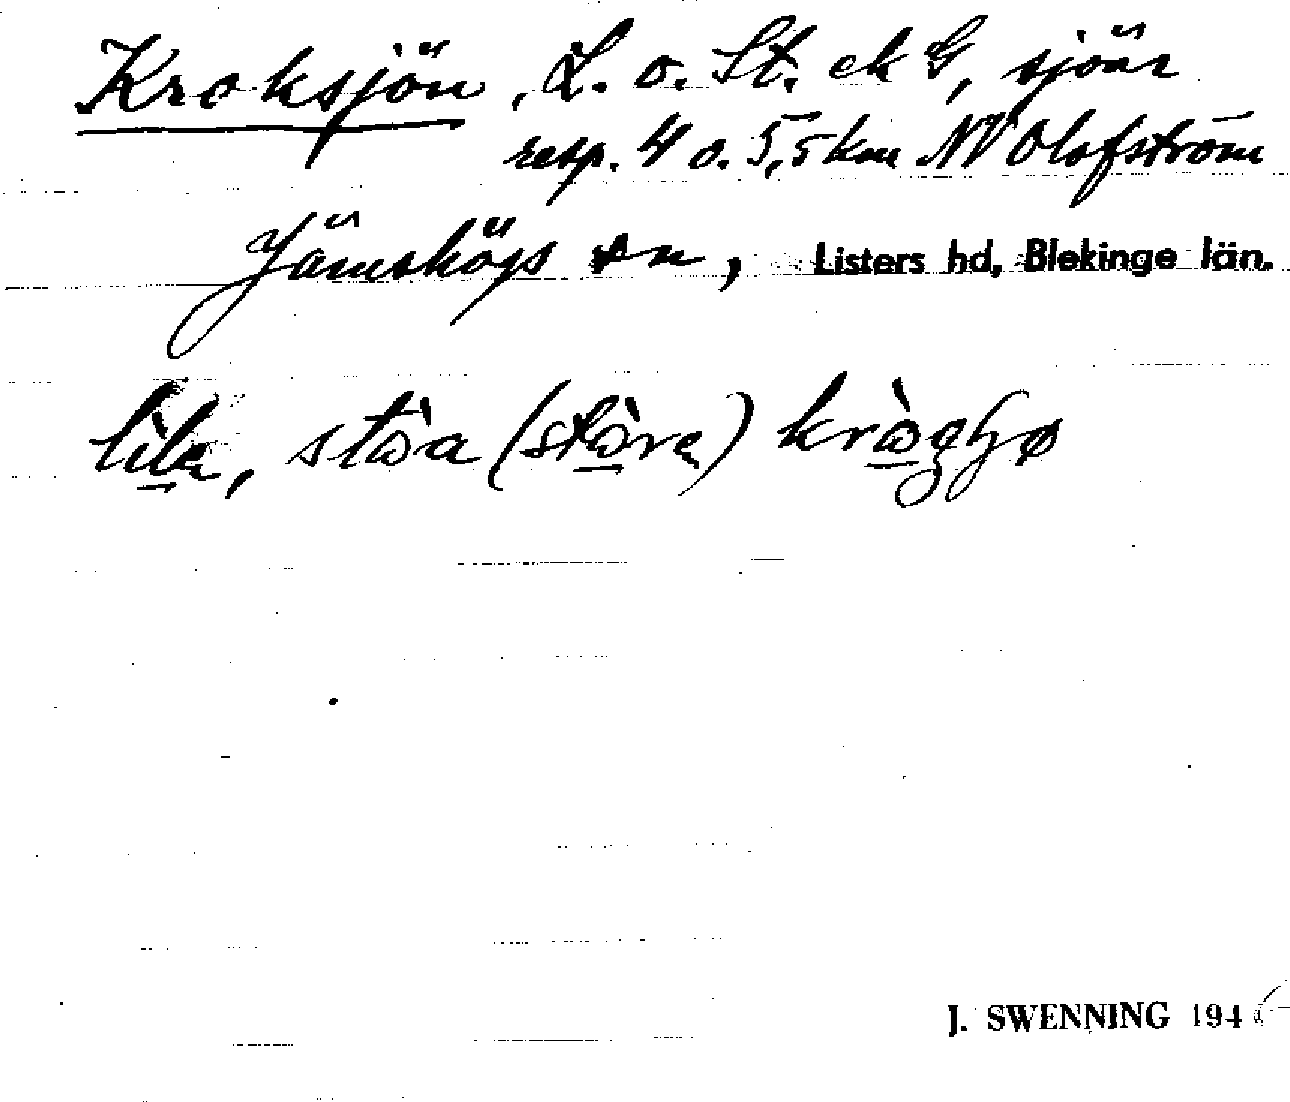 Kroksjön, L. o. St. ek G, sjöar
resp. 4 o. 5,5 km NV Olofström
Jämshögs sn, Listers hd, Blekinge län.
lìla, stòa (stòra)
J. SWENNING 194